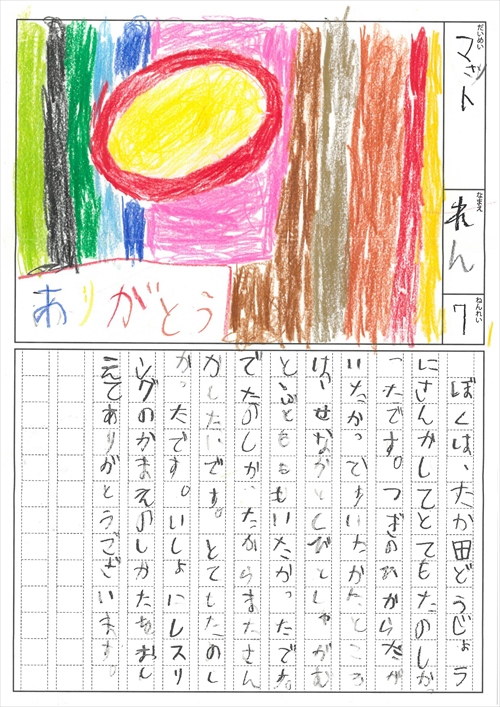 だいめい
マット
なまえ
れん
ねんれい
7
ありがとう
ぼくは、たか田どうじょう
にさんかしてとてもたのしかっ
ったです。つぎのひからだが
いたかっ いたかたところ
は、せなかとくびとしゃがむ
とふとももももいたかったでも
でたのしか、たからまたさん
かしたいです。とてもたのし
かったです。いしょにレスリ
ングのかまえのしかたをおし
えてありがとうございます。